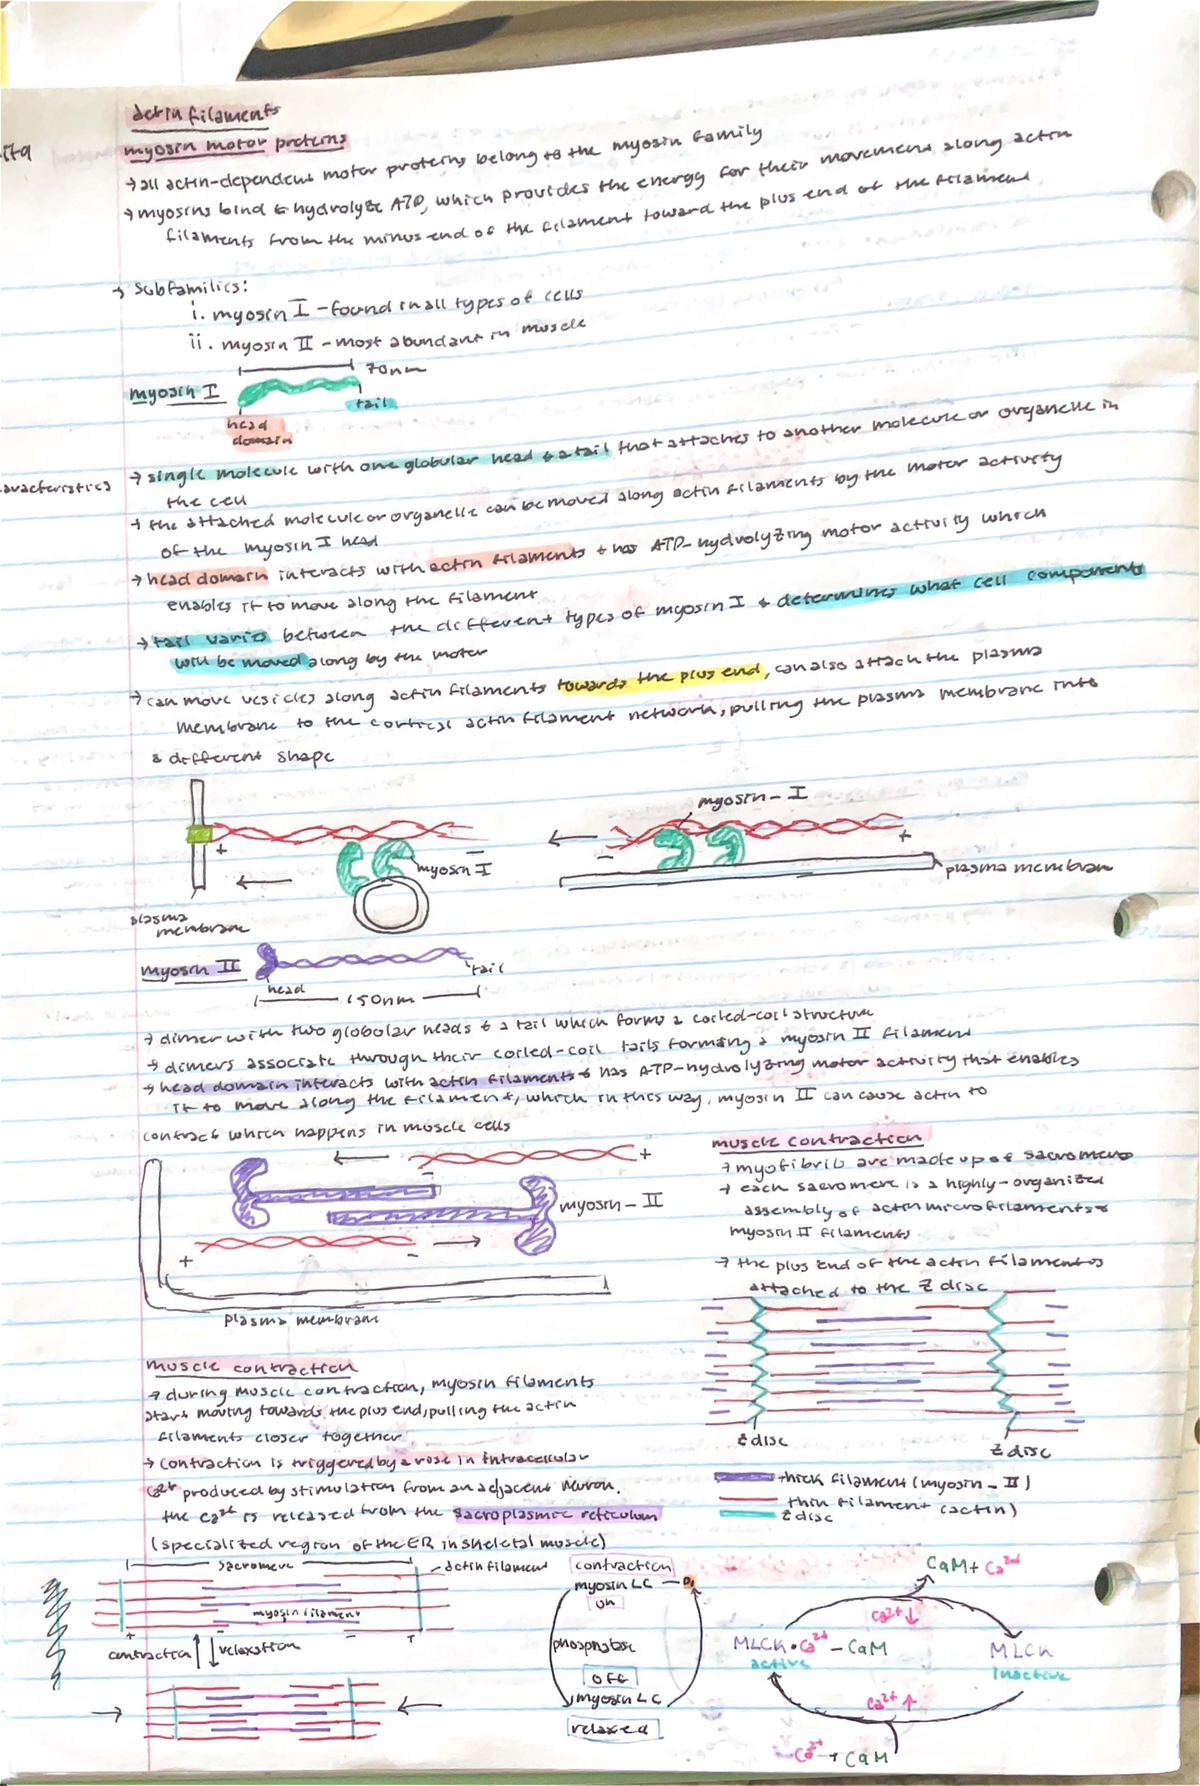 actin filaments
myosin motor proteins
→ all actin-dependent motor proteins belong to the myosin family
→ myosins bind & hydrolyze ATP, which provides the energy for their movement along actin
filaments from the minus end of the filament toward the plus end of the filament
→ Subfamilies:
i. myosin I - found in all types of cells
ii. myosin II - most abundant in muscle
70nm
myosin I
tail
head
domain
→ single molecule with one globular head & a tail that attaches to another molecule or organelle in
the cell
→ the attached molecule or organelle can be moved along actin filaments by the motor activity
of the myosin I head
→ head domain interacts with actin filaments & has ATP-hydrolyzing motor activity which
enables it to move along the filament
→ tail varies between the different types of myosin I & determines what cell components
will be moved along by the motor
→ can move vesicles along actin filaments towards the plus end, can also attach the plasma
membrane to the cortical actin filament network, pulling the plasma membrane into
a different shape
myosin - I
+
-
myosin I
-
+
plasma membrane
plasma
membrane
myosin II
tail
head
150nm
→ dimer with two globular heads & a tail which forms a coiled-coil structure
→ dimers associate through their coiled-coil tails forming a myosin II filament
→ head domain interacts with actin filaments & has ATP-hydrolyzing motor activity that enables
it to move along the filament, which in this way, myosin II can cause actin to
contract which happens in muscle cells
+
-
myosin - II
+
-
plasma membrane
muscle contraction
→ myofibrils are made up of sacromeres
→ each sacromere is a highly-organized
assembly of actin microfilaments &
myosin II filaments
→ the plus end of the actin filament is
attached to the Z disc
Z disc
Z disc
thick filament (myosin - II)
thin filament (actin)
Z disc
muscle contraction
→ during muscle contraction, myosin filaments
start moving towards the plus end, pulling the actin
filaments closer together
→ contraction is triggered by a rose in intracellular
Ca²⁺ produced by stimulation from an adjacent neuron.
the Ca²⁺ is released from the sacroplasmic reticulum
(specialized region of the ER in skeletal muscle)
sacromere
actin filament
myosin filament
+
-
-
+
contraction
relaxation
contraction
myosin LC - P
on
phosphatase
off
myosin LC
relaxed
CaM + Ca²⁺
Ca²⁺ ↓
MLCK • Ca²⁺ - CaM
active
MLCK
inactive
Ca²⁺ ↑
Ca²⁺ + CaM